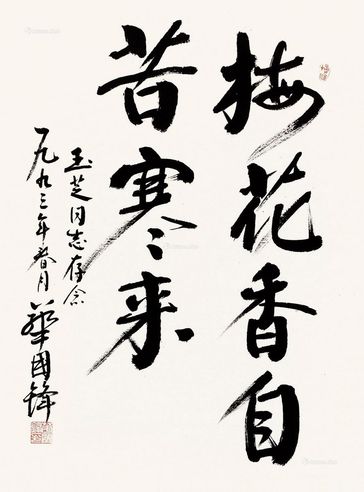 梅花香自
苦寒来
玉芝同志存念
一九九三年春月 华国锋